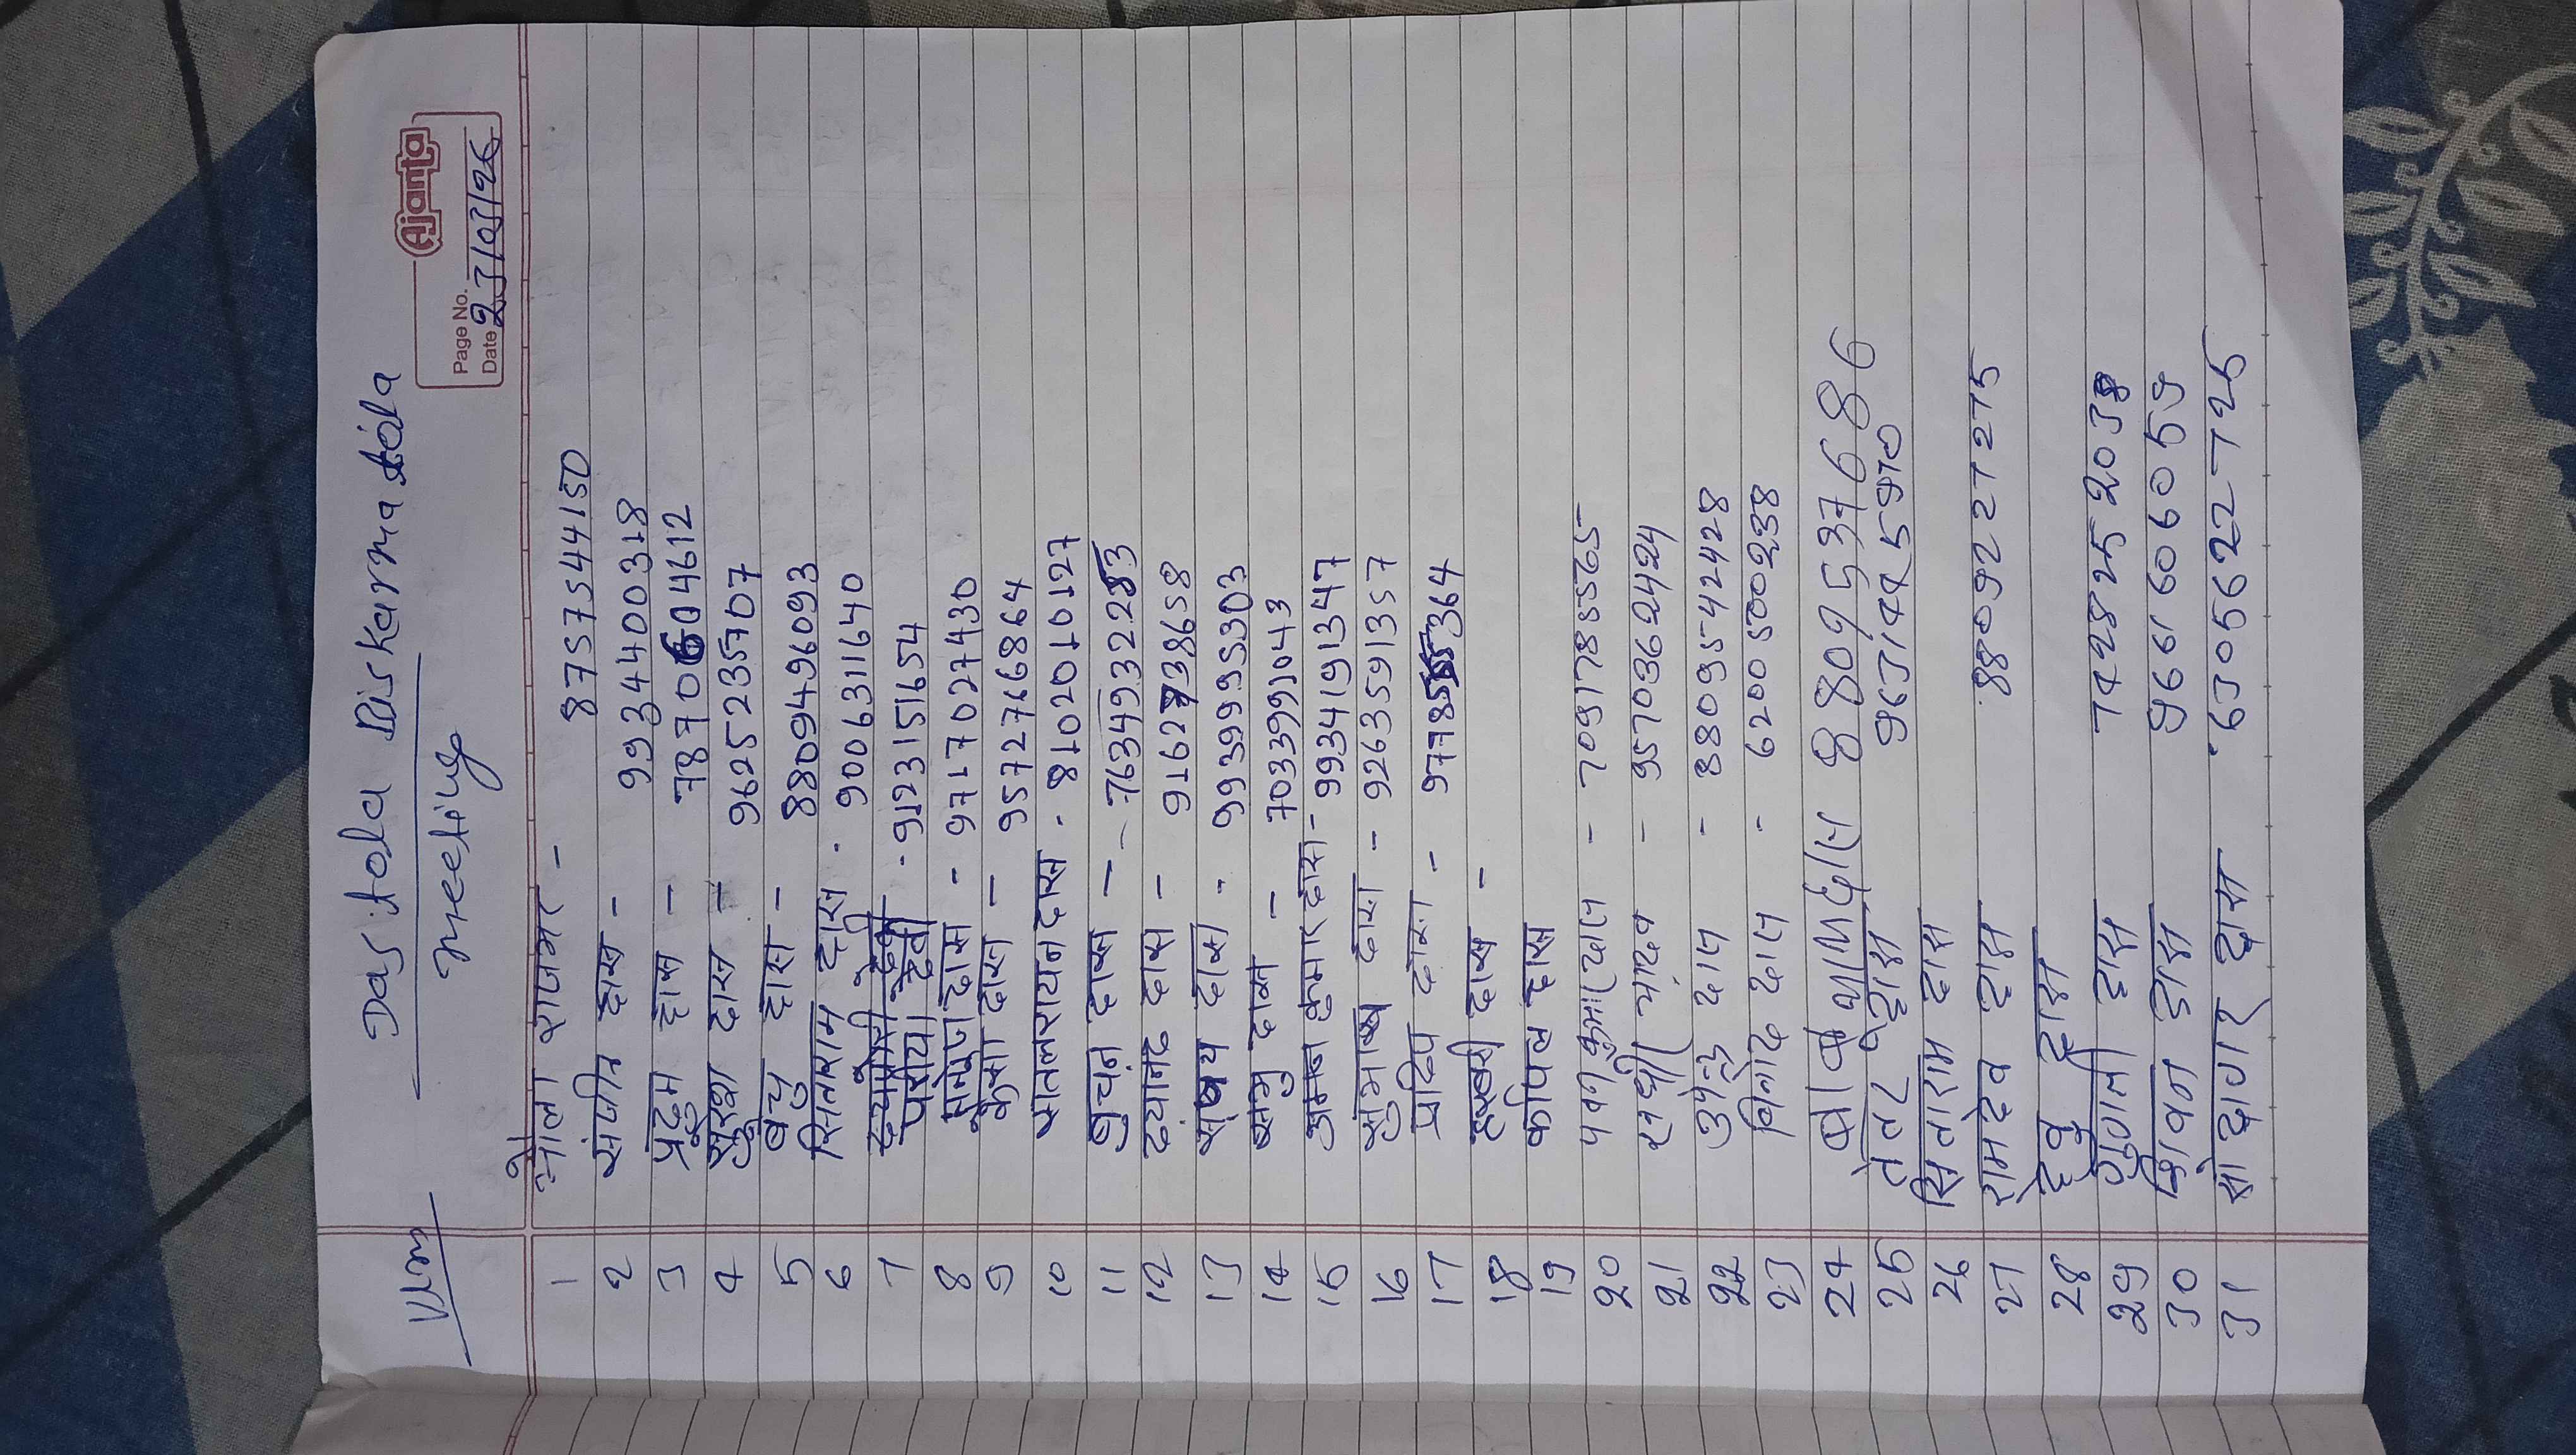 Das tola Biskarma tola
Vlm meeting
Ajanta
Page No.
Date 23/03/26
1 भोला राजभर - 8757544150
2 संजीत दास - 9934400318
3 प्रदुम दास - 7870604612
4 सुरेश दास - 9625235707
5 बच्चु दास - 8809496093
6 सितबराम दास . 9006311640
7 परीया देवी . 9123151654
8 मनपुज दास - 9717027430
9 केसा दास - 9572766864
10 सातलरायन दास . 8102010127
11 बुचन दास - 7634932283
12 दयानंद दास - 9162738658
13 संजय दास . 9939995303
14 बसमु दास - 7033991043
15 अमन कुमार दास - 9934191347
16 सुभाष दास - 9263591357
17 प्रदिप दास - 9778555364
18 दास -
19 कपिल दास
20 पवन कुमार दास - 7091785565
21 यादव - 9570362424
22 उपेन्द्र दास - 8809542428
23 विनोद दास - 6200500238
24 8809537686
25 तेतर दास 9631445910
26 सितारम दास
27 रामदेव दास 8809227275
28 देवु दास
29 गुगली दास 7428252038
30 शिवन दास 9661606059
31 सोदागर दास 6305622725